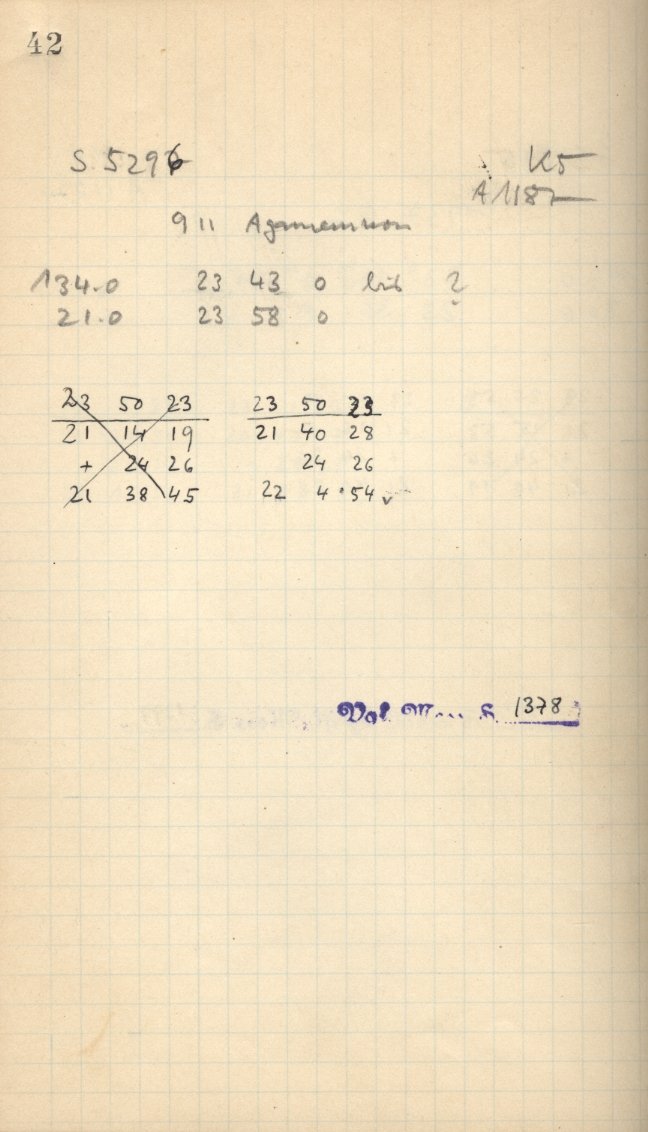 42
S. 5296
K5
A 1187
911 Agamemnon
134.0 23 43 0 bis ?
21.0 23 58 0
23 50 23
21 14 19
+ 24 26
21 38 45
23 50 23
21 40 28
24 26
22 4 54
1378